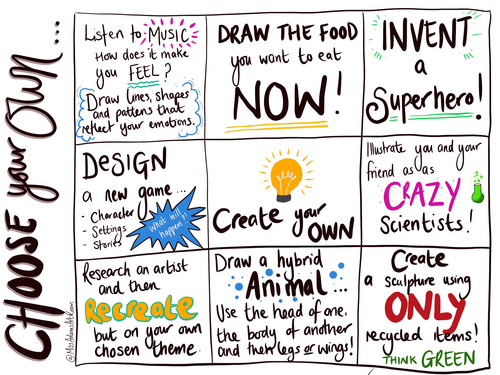 CHOOSE your OWN...
Listen to MUSIC
How does it make
you FEEL?
Draw lines, shapes
and patterns that
reflect your emotions.
DRAW THE FOOD
you want to eat
NOW!
INVENT
a
Superhero!
DESIGN
a new game...
- Character
- Settings
- Stories
What will
happen?
Create your
OWN
Illustrate you and your
friend as as
CRAZY
Scientists!
Research an artist
and then
Recreate
but on your own
chosen theme.
Draw a hybrid
Animal...
Use the head of one,
the body of another
and then legs or wings!
Create
a sculpture using
ONLY
recycled items!
THINK GREEN